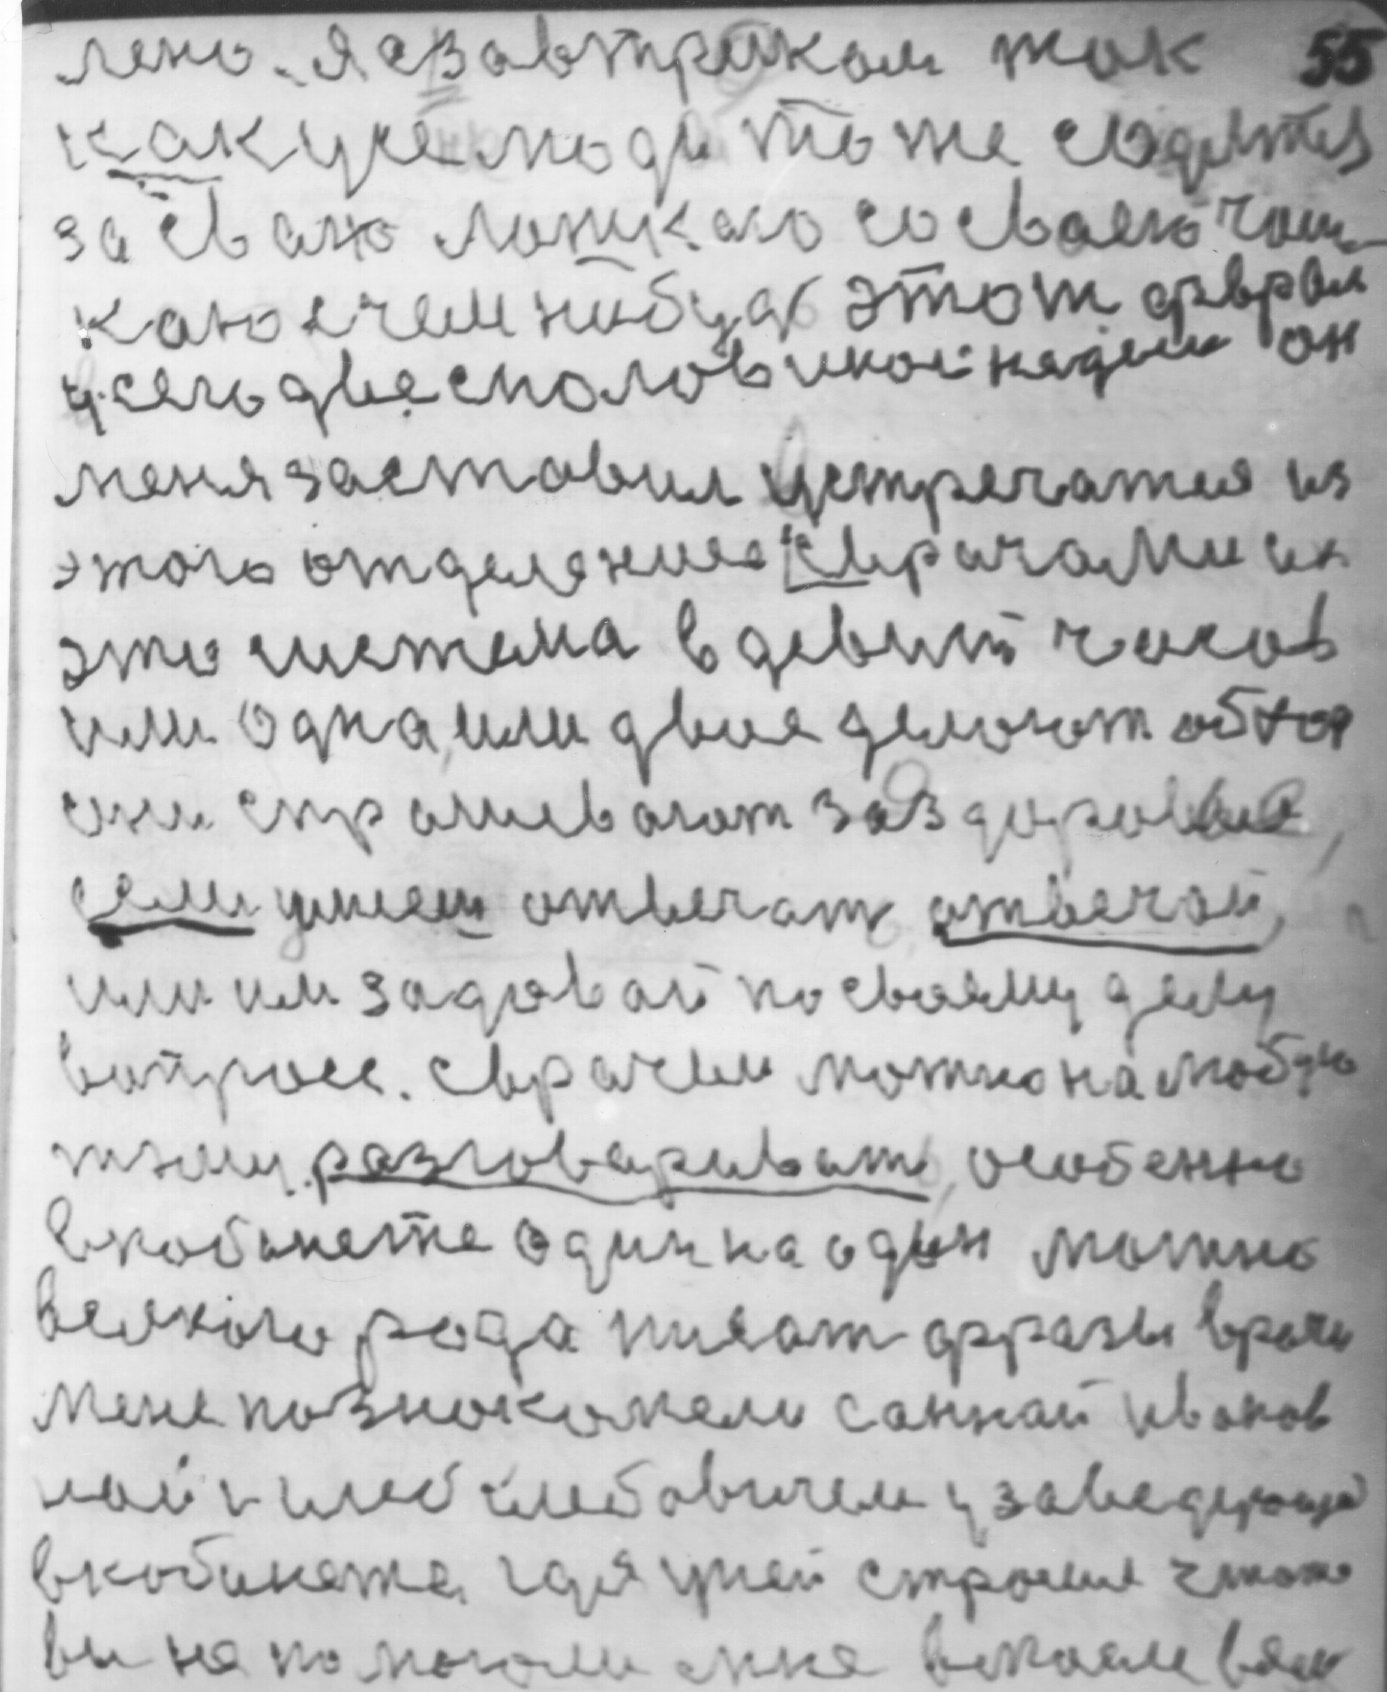 лено. я завтракаю так 55
как усе люди тоже садится
за сваю ложкаю со сваею чаш-
каю и чем нибудь этот феврал
усего две споловиной недели он
меня заставил устречатся из
этого отделения сврачами их
эта система в девить часов
или одна, или двие делают обход
они спрашевают за здоровие,
если умееш отвечат отвечай,
или им задавай по сваему делу
вапросы. сврачем можно на любую
тэму разговариват, особенно
вкабинете один на один можно
всякого рода писат фразы врачи
мене познокомели саннай иванов
най и глебавичем у заведующей
вкабинете, где у ней строгие
вы не помогали мне